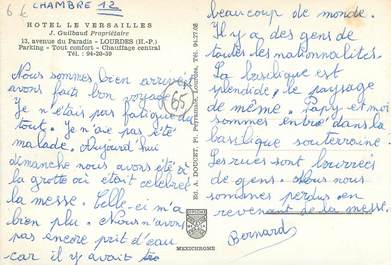 6 €
CHAMBRE 12
HOTEL LE VERSAILLES
J. Guilbaud Propriétaire
13, avenue du Paradis - LOURDES (H.-P.)
Parking - Tout confort - Chauffage central
Tél. : 94-20-39
Nous sommes bien arrivés
avons fait bon voyage
Je n'étais pas fatigué du
tout. Je n'ai pas été
malade. Aujourd'hui
dimanche nous avons été à
la grotte où était célébrée
la messe. Celle-ci m'a
bien plu. Nous n'avons
pas encore prit d'eau
car il y avait
65
Ed. A. DOUCET, Pl. Peyramale, LOURDES, Tél. 94.27.08
MEXICHROME
beaucoup de monde.
Il y a des gens de
toutes les nationnalités.
La basilique est
splendide, le paysage
de même. Papy et moi
sommes entré dans la
basilique souterraine.
Les rues sont bourrées
de gens. Nous nous
sommes perdus en
revenant de la messe.
Bernard